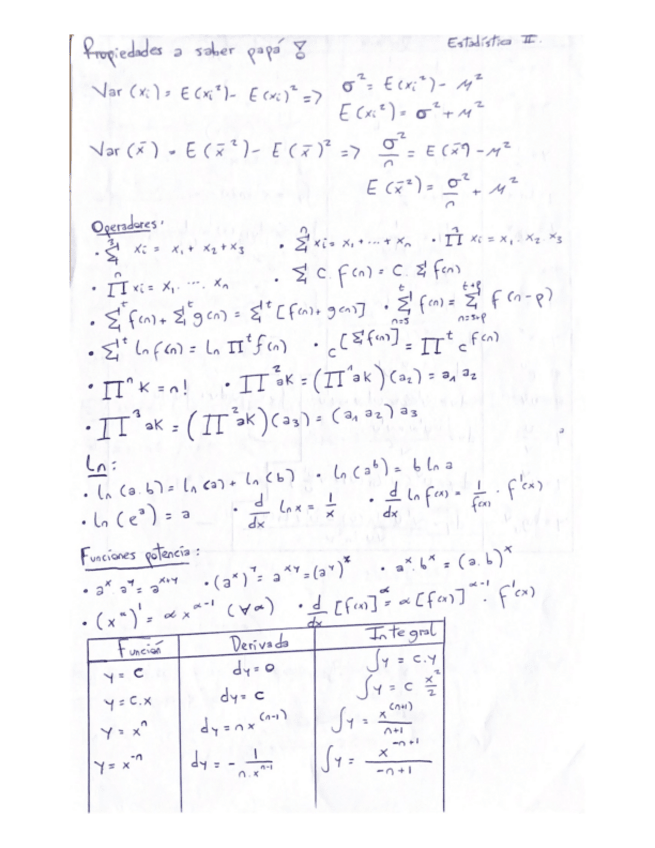 Propiedades a saber papá 8 Estadística II.
Var (xi) = E(xi²) - E(xi)² => σ² = E(xi²) - μ²
E(xi²) = σ² + μ²
Var (x̄) = E(x̄²) - E(x̄)² => σ²/n = E(x̄²) - μ²
E(x̄²) = σ²/n + μ²
Operadores.
• Σ³ xi = x₁ + x₂ + x₃ • Σⁿ xi = x₁ + ... + xn • Π³ xi = x₁ . x₂ . x₃
• Πⁿ xi = x₁ . ... . xn • Σ c . f(n) = c . Σ f(n)
• Σᵗ f(n) + Σᵗ g(n) = Σᵗ [f(n) + g(n)] • Σᵗ n=s f(n) = Σᵗ⁺ᵖ n=s+p f(n-p)
• Σᵗ ln f(n) = ln Πᵗ f(n) • c^[Σ f(n)] = Πᵗ c^f(n)
• Πⁿ K = n! • Π² aK = (Π¹ aK)(a₂) = a₁ a₂
• Π³ aK = (Π² aK)(a₃) = (a₁ a₂) a₃
Ln:
• ln (a.b) = ln (a) + ln (b) • ln (aᵇ) = b ln a
• ln (eᵃ) = a • d/dx ln x = 1/x • d/dx ln f(x) = 1/f(x) . f'(x)
Funciones potencia:
• aˣ . aʸ = aˣ⁺ʸ • (aˣ)ʸ = aˣʸ = (aʸ)ˣ • aˣ . bˣ = (a.b)ˣ
• (x^α)' = α x^α-1 (∀α) • d/dx [f(x)]^α = α [f(x)]^α-1 . f'(x)
Función Derivada Integral
y = c dy = 0 ∫y = c.y
y = c.x dy = c ∫y = c x²/2
y = xⁿ dy = n x^(n-1) ∫y = x^(n+1)/n+1
y = x⁻ⁿ dy = - 1/n.xⁿ⁻¹ ∫y = x⁻ⁿ⁺¹/-n+1